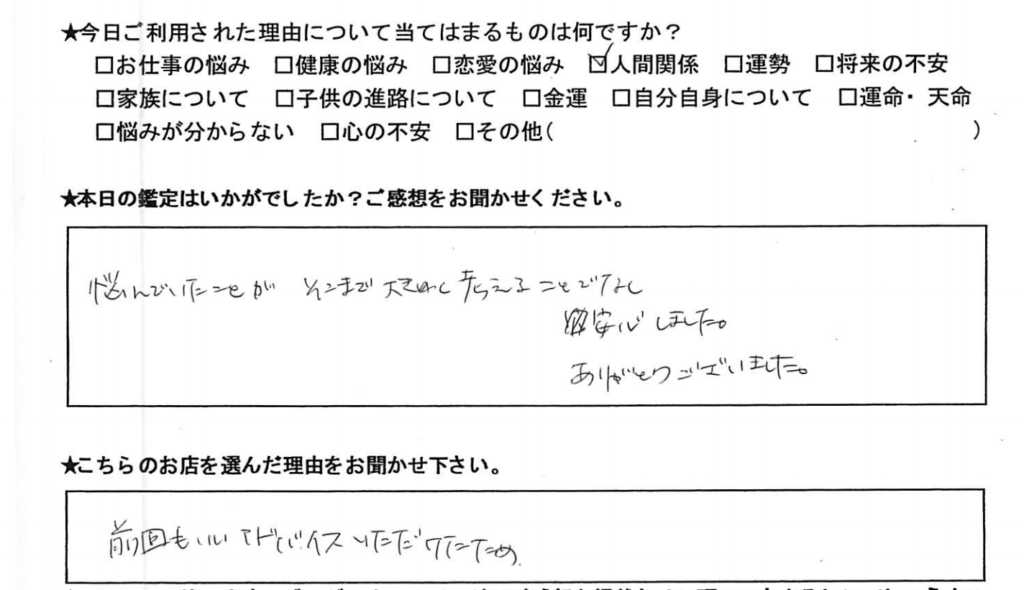 ★今日ご利用された理由について当てはまるものは何ですか？
□お仕事の悩み □健康の悩み □恋愛の悩み ☑人間関係 □運勢 □将来の不安
□家族について □子供の進路について □金運 □自分自身について □運命・天命
□悩みが分からない □心の不安 □その他( )
★本日の鑑定はいかがでしたか？ご感想をお聞かせください。
悩んでいたことが そこまで大きく考えることでなし
安心しました。
ありがとうございました。
★こちらのお店を選んだ理由をお聞かせ下さい。
前回もいいアドバイスいただけたため